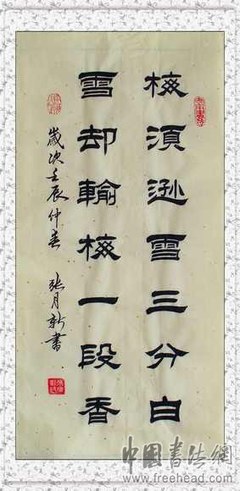 梅須遜雪三分白
雪却輸梅一段香
歲次壬辰仲春 張月新書
中國書法網
www.freehead.com